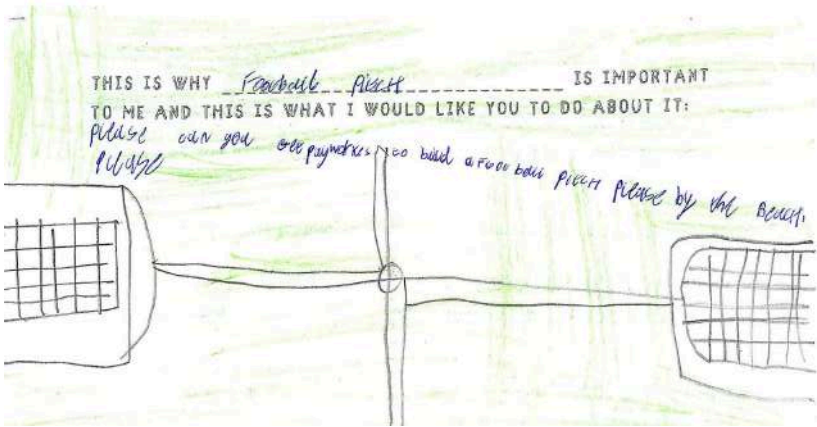 THIS IS WHY Football Pitch IS IMPORTANT
TO ME AND THIS IS WHAT I WOULD LIKE YOU TO DO ABOUT IT:
please can you to build a Football pitch please by the Beach.
please